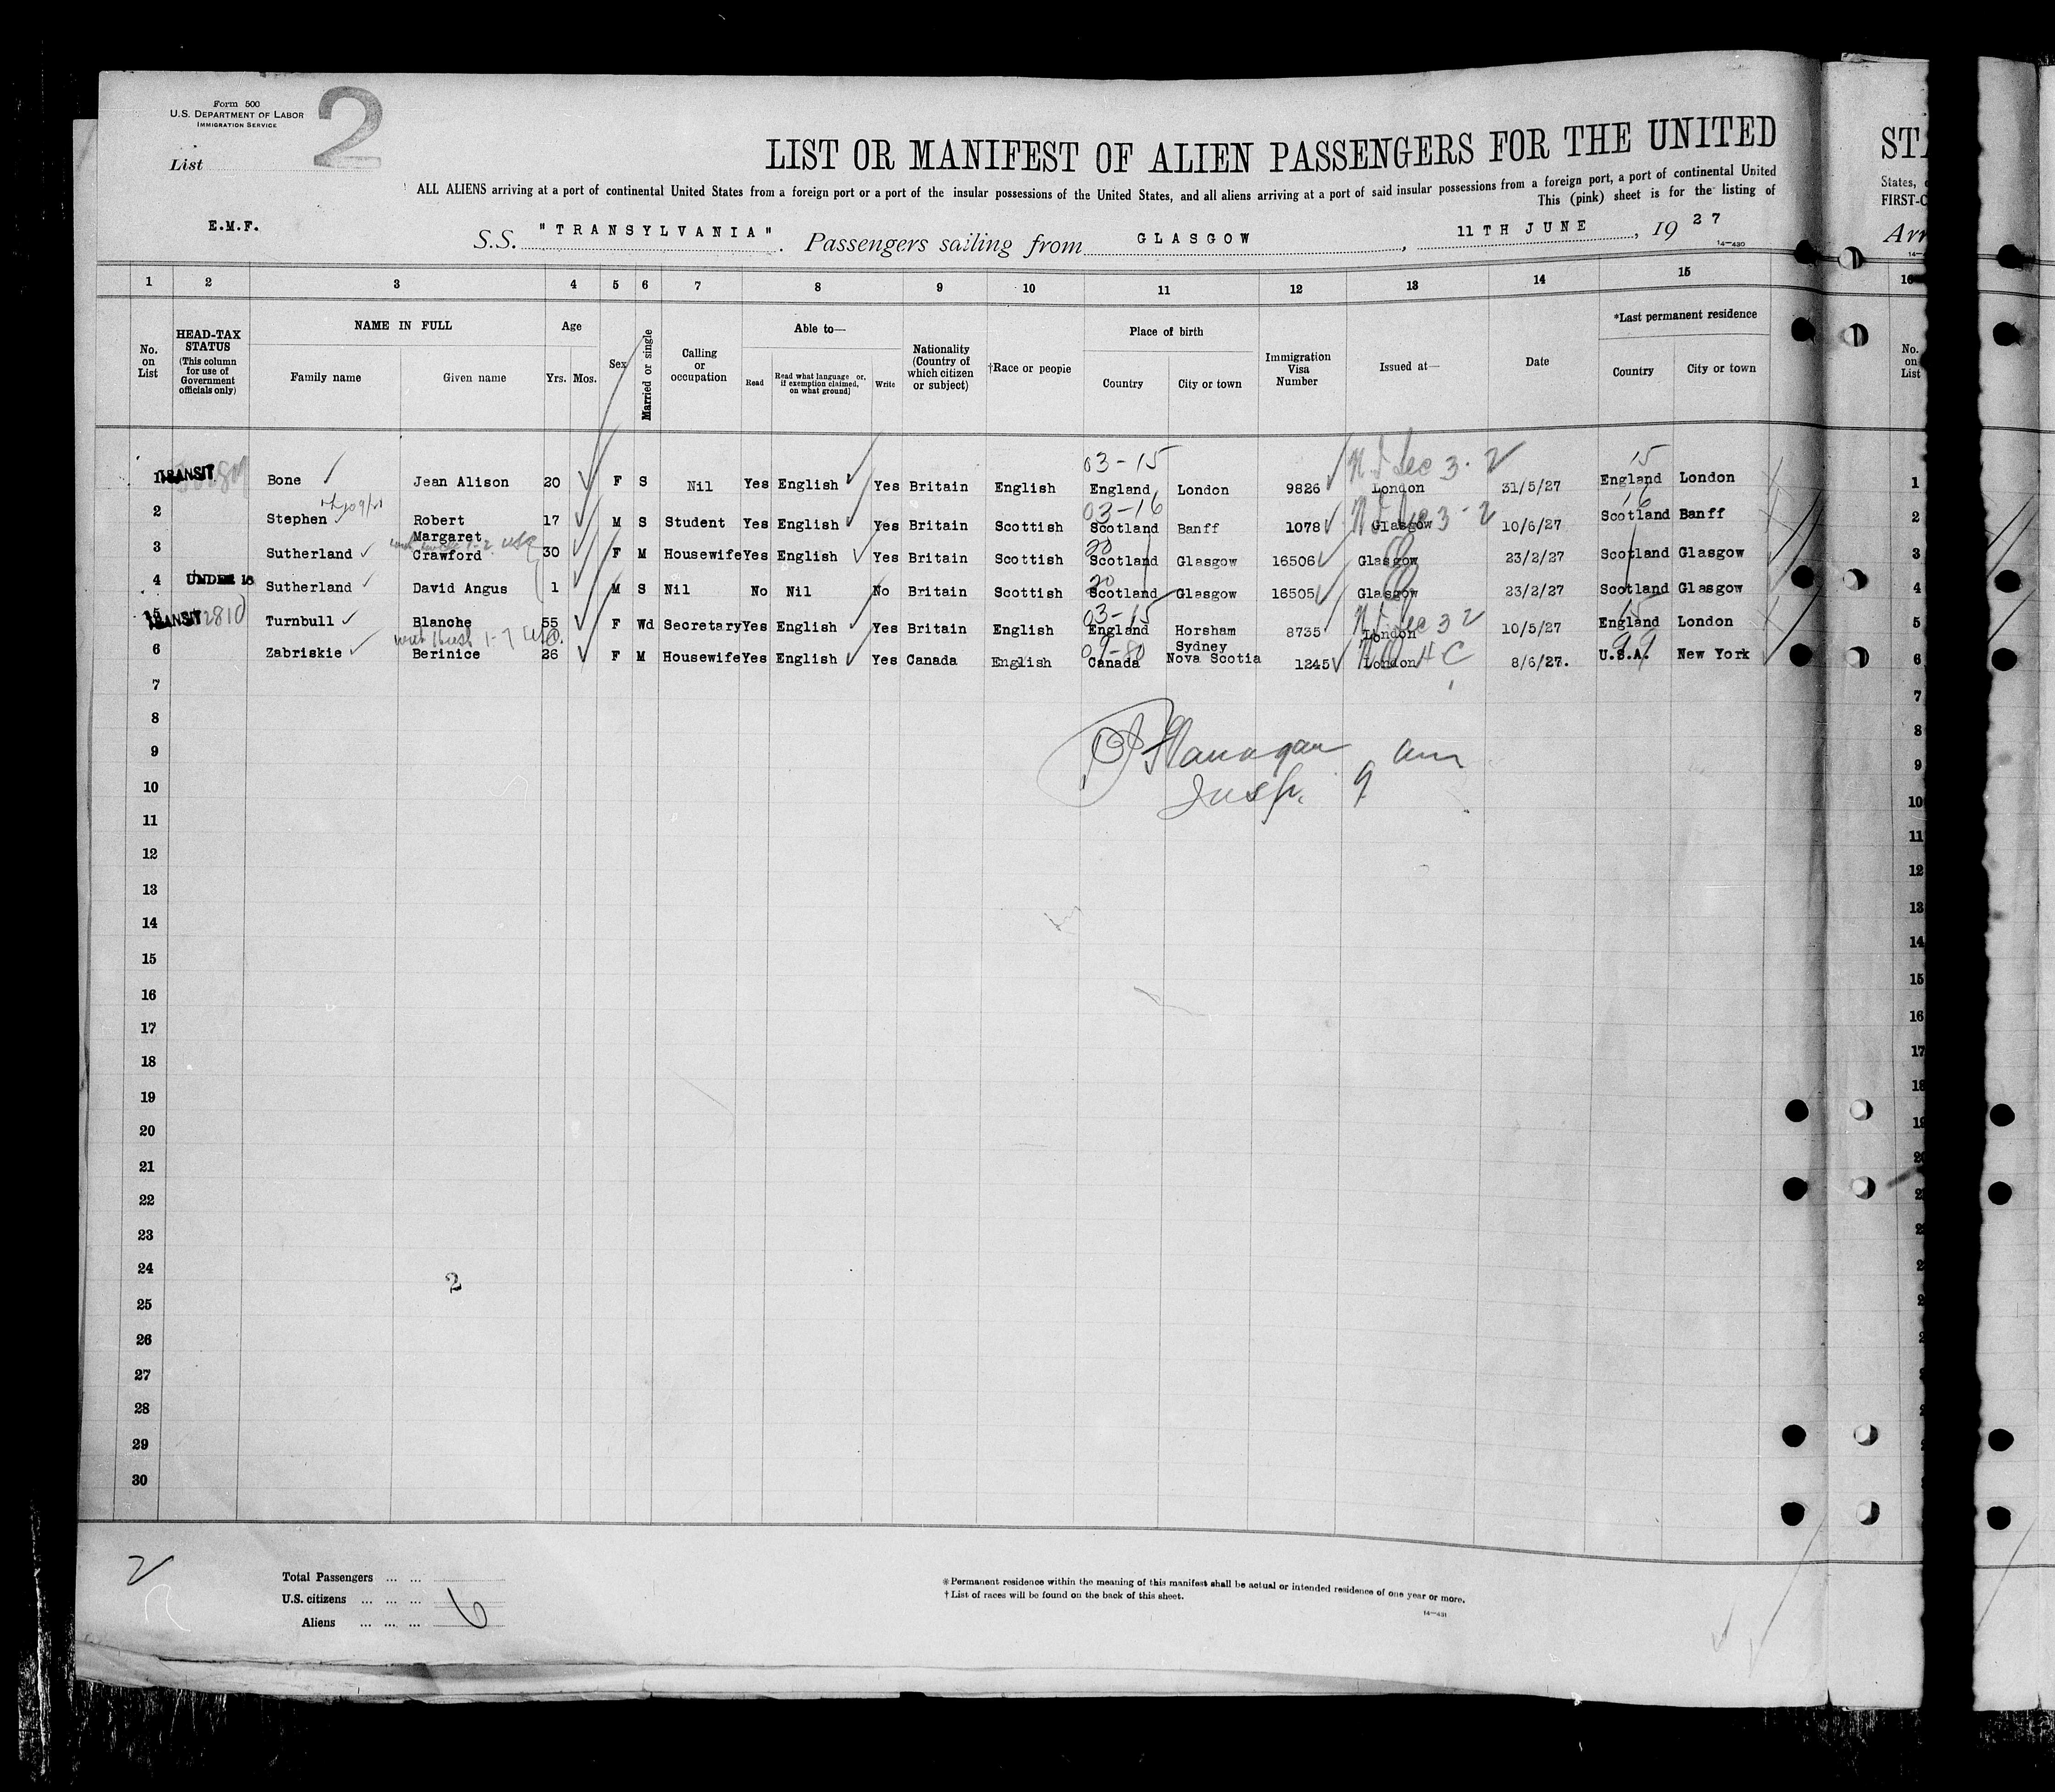 Form 500
U.S. DEPARTMENT OF LABOR
IMMIGRATION SERVICE
2
List
LIST OR MANIFEST OF ALIEN PASSENGERS FOR THE UNITED
ALL ALIENS arriving at a port of continental United States from a foreign port or a port of the insular possessions of the United States, and all aliens arriving at a port of said insular possessions from a foreign port, a port of continental United
This (pink) sheet is for the listing of
E.M.F.
S.S. "TRANSYLVANIA". Passengers sailing from GLASGOW, 11TH JUNE, 19 27
14—430
1 2 3 4 5 6 7 8 9 10 11 12 13 14 15
No. on List
HEAD-TAX STATUS (This column for use of Government officials only)
NAME IN FULL Family name Given name
Age Yrs. Mos.
Sex
Married or single
Calling or occupation
Able to— Read Read what language [or, if exemption claimed, on what ground] Write
Nationality (Country of which citizen or subject)
†Race or people
Place of birth Country City or town
Immigration Visa Number
Issued at—
Date
*Last permanent residence Country City or town
03-15 15
1 TRANSIT Bone Jean Alison 20 F S Nil Yes English Yes Britain English England London 9826 London 31/5/27 England London 1
03-16 16
2 Stephen Robert 17 M S Student Yes English Yes Britain Scottish Scotland Banff 1078 Glasgow 10/6/27 Scotland Banff 2
3 Sutherland Margaret Crawford 30 F M Housewife Yes English Yes Britain Scottish Scotland Glasgow 16506 Glasgow 23/2/27 Scotland Glasgow 3
4 UNDER 16 Sutherland David Angus 1 M S Nil No Nil No Britain Scottish Scotland Glasgow 16505 Glasgow 23/2/27 Scotland Glasgow 4
03-15 15
5 TRANSIT Turnbull Blanche 55 F Wd Secretary Yes English Yes Britain English England Horsham 8735 London 10/5/27 England London 5
6 Zabriskie Berinice 26 F M Housewife Yes English Yes Canada English Canada Sydney Nova Scotia 1245 London 8/6/27. U.S.A. New York 6
7
8
9
10
11
12
13
14
15
16
17
18
19
20
21
22
23
24
2
25
26
27
28
29
30
Total Passengers ... ...
U.S. citizens ... ... ...
Aliens ... ... ... 6
*Permanent residence within the meaning of this manifest shall be actual or intended residence of one year or more.
†List of races will be found on the back of this sheet.
14—431